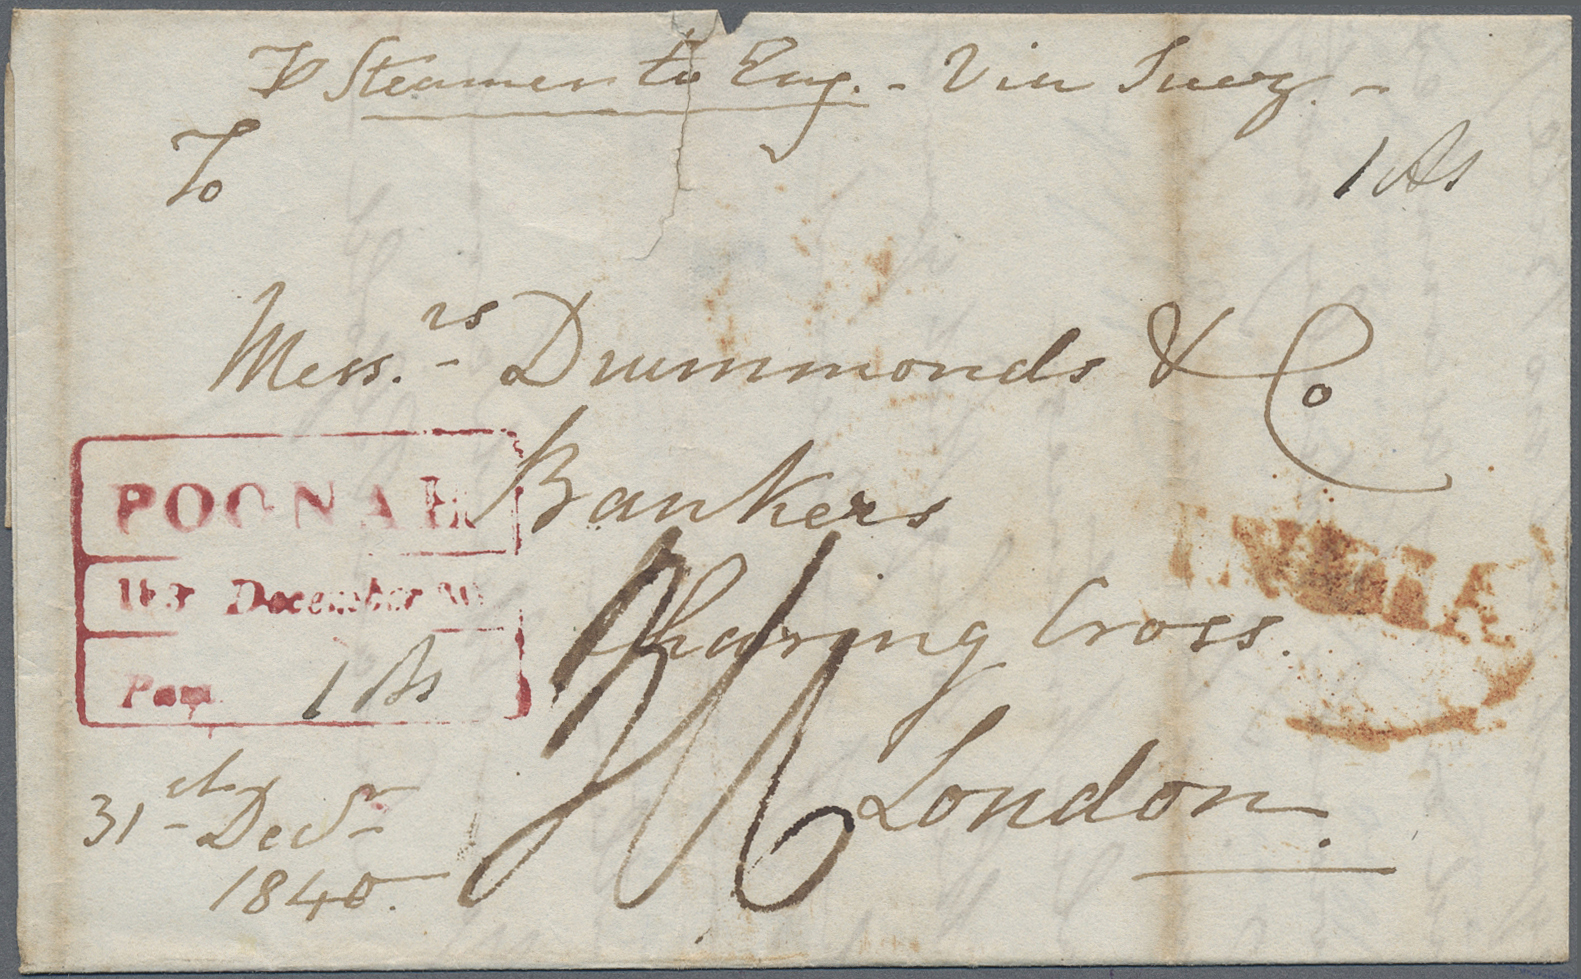 P Steamer to Eng. - Via Suez. -
To
1 As
Messrs. Drummonds & Co
Bankers
Charing Cross.
London.
POONAH
December
Paid
1 As
31st Decr
1840.
INDIA